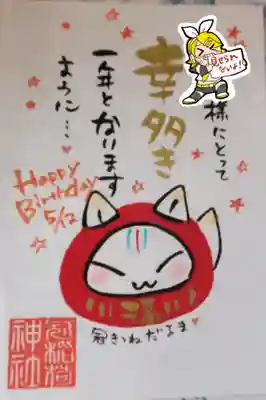 見せられ
ないよ!!
様にとって
幸多き
一年となります
ように…♥
Happy
Birthday
5/12
冠きねだるま♥
神社